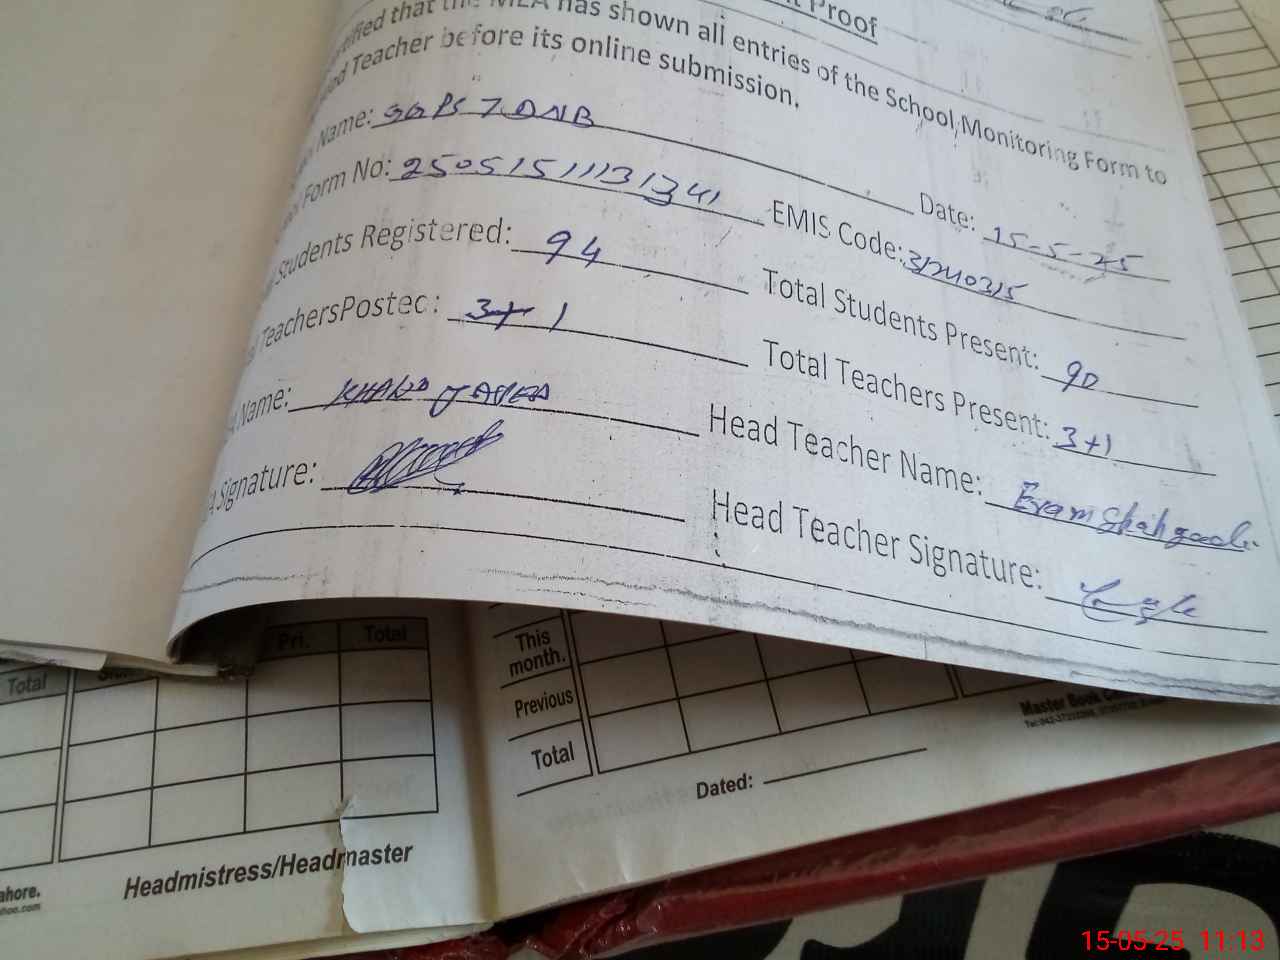 Proof
that the MEA has shown all entries of the School Monitoring Form to
Teacher before its online submission.
Name: GGPS 7 DNB Date: 15-5-25
Form No: 25051511131341 EMIS Code: 31240315
Students Registered: 94 Total Students Present: 90
Teachers Posted: 3+1 Total Teachers Present: 3+1
Name: KHALID JAVED Head Teacher Name: Eram Shahzadi
Signature: Head Teacher Signature:
Pri. Total
Total
This month.
Previous
Total
Master Book
Dated:
Headmistress/Headmaster
ahore.
hoo.com
15-05-25 11:13